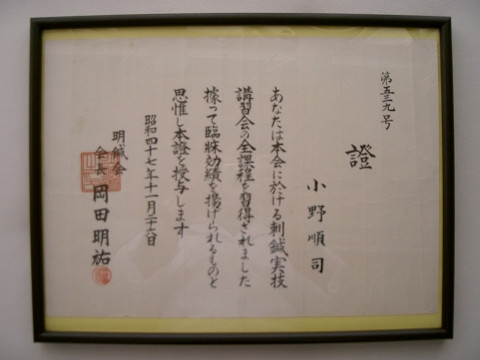 第五三九号
證
小野順司
あなたは本会に於ける刺鍼実技
講習会の全課程を習得されました
據って臨牀効績を揚げられるものと
思惟し本證を授与します
昭和四十七年十一月二十六日
明鍼会
会長 岡田明祐